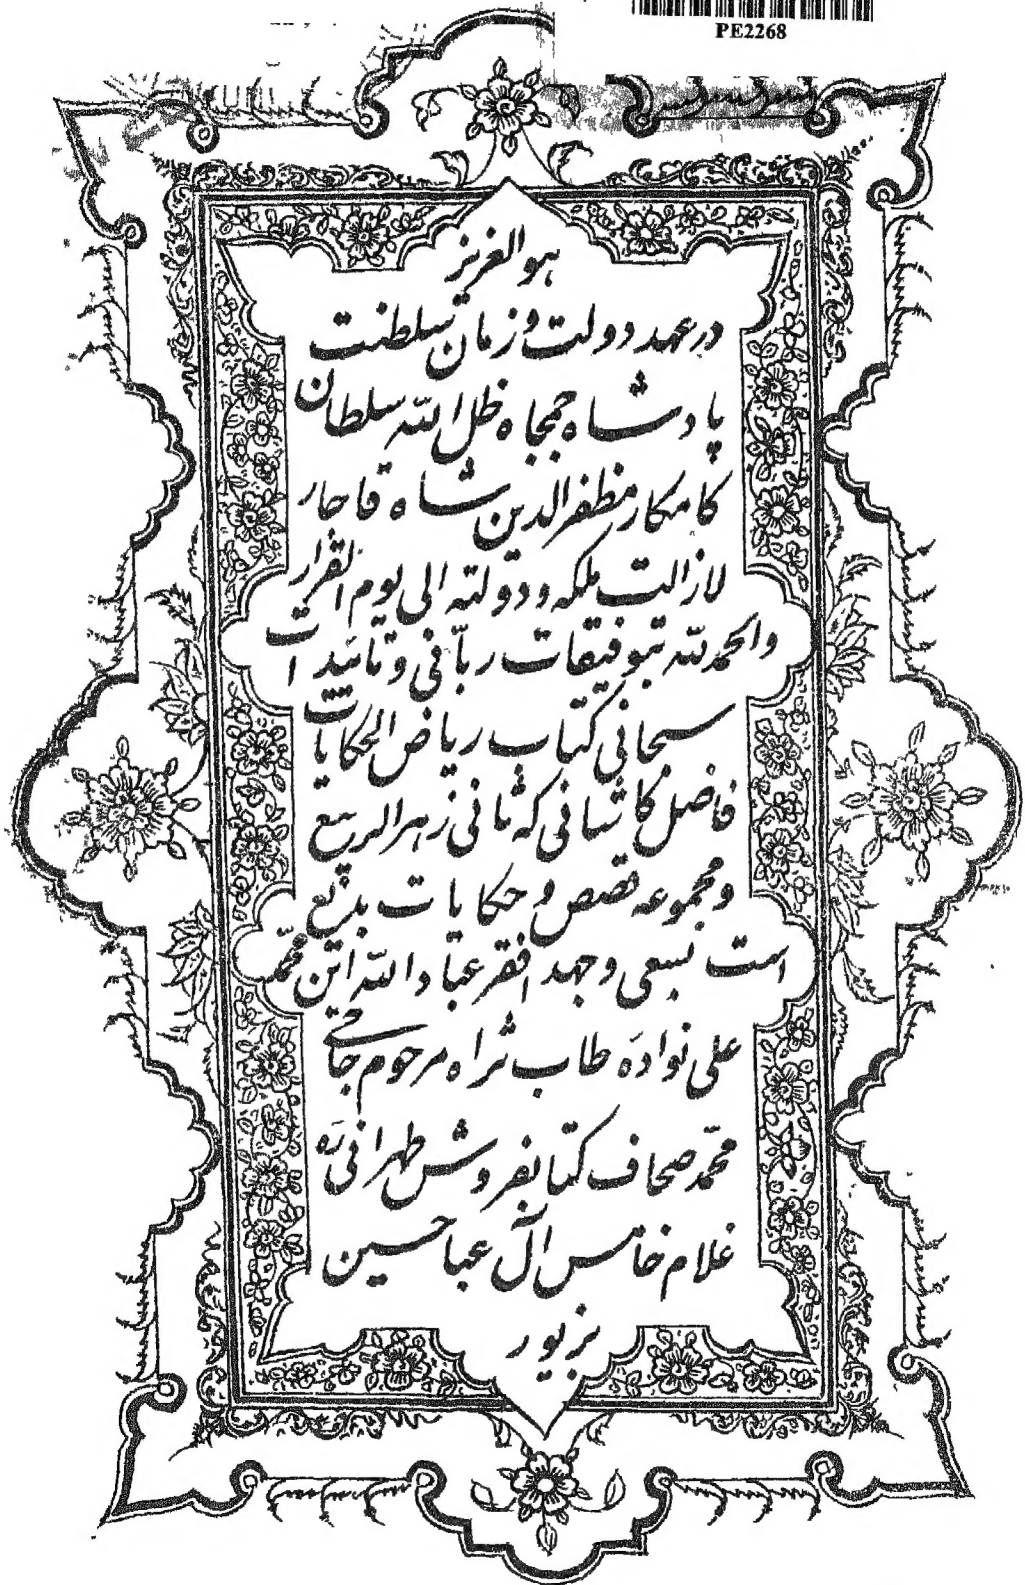 PE2268
هو العزیز
در عهد دولت و زمان سلطنت
پادشاه جمجاه ظل اللّه سلطان
کامکار مظفر الدین شاه قاجار
لازالت ملکه و دولته الی یوم القرار
والحمد للّه بتوفیقات ربّانی و تائیدات
سبحانی کتاب ریاض الحکایات
فاضل کاشانی که ثانی زهر الربیع
و مجموعه قصص و حکایات بدیع
است بسعی و جهد افقر عباد اللّه ابن محمّد
علی نواده طاب ثراه مرحوم حاجی
محمّد صحاف کتابفروش طهرانی ره
غلام خامس آل عبا حسین
بزیور